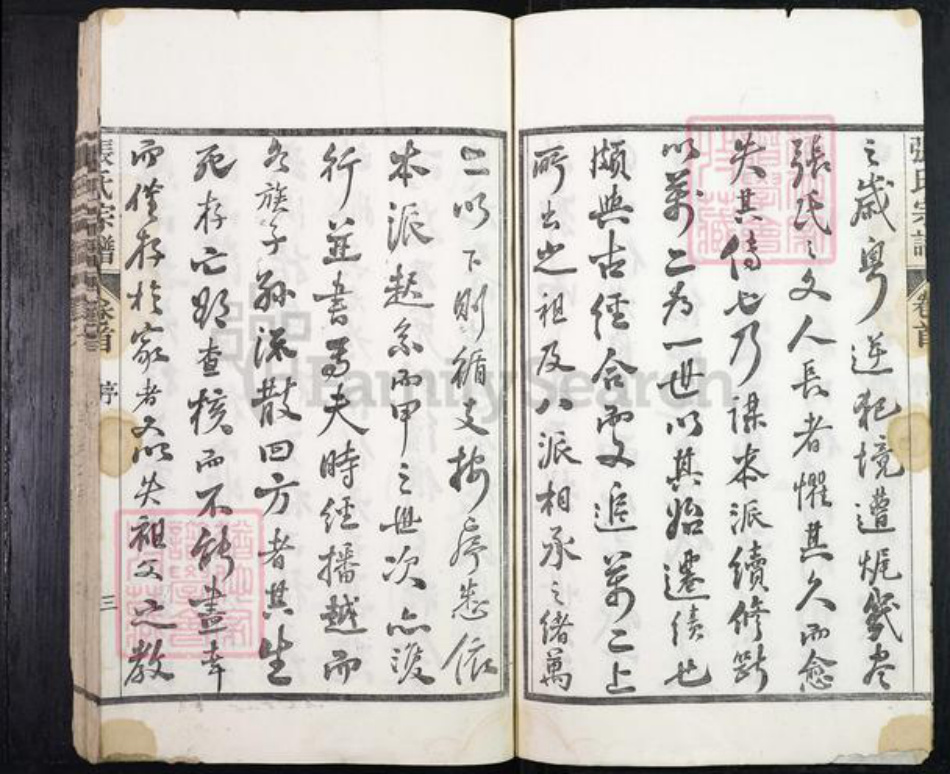 之歲粵逆犯境遭燬幾盡
張氏之文人長者懼其久而愈
失其傳也乃謀本派續修斷
以萬二為一世以其始遷續也
頗與古經合而又追萬二上
所出之祖及八派相承之緒萬
二以下則循支按房悉依
本派趂系而甲之世次亦復
行並書焉夫時經播越而
各族子孫流散四方者其生
死存亡難查核而不能盡幸
而僅存於家者又以失祖父之教
張氏宗譜 卷首 序 三
張氏宗譜 卷首
FamilySearch